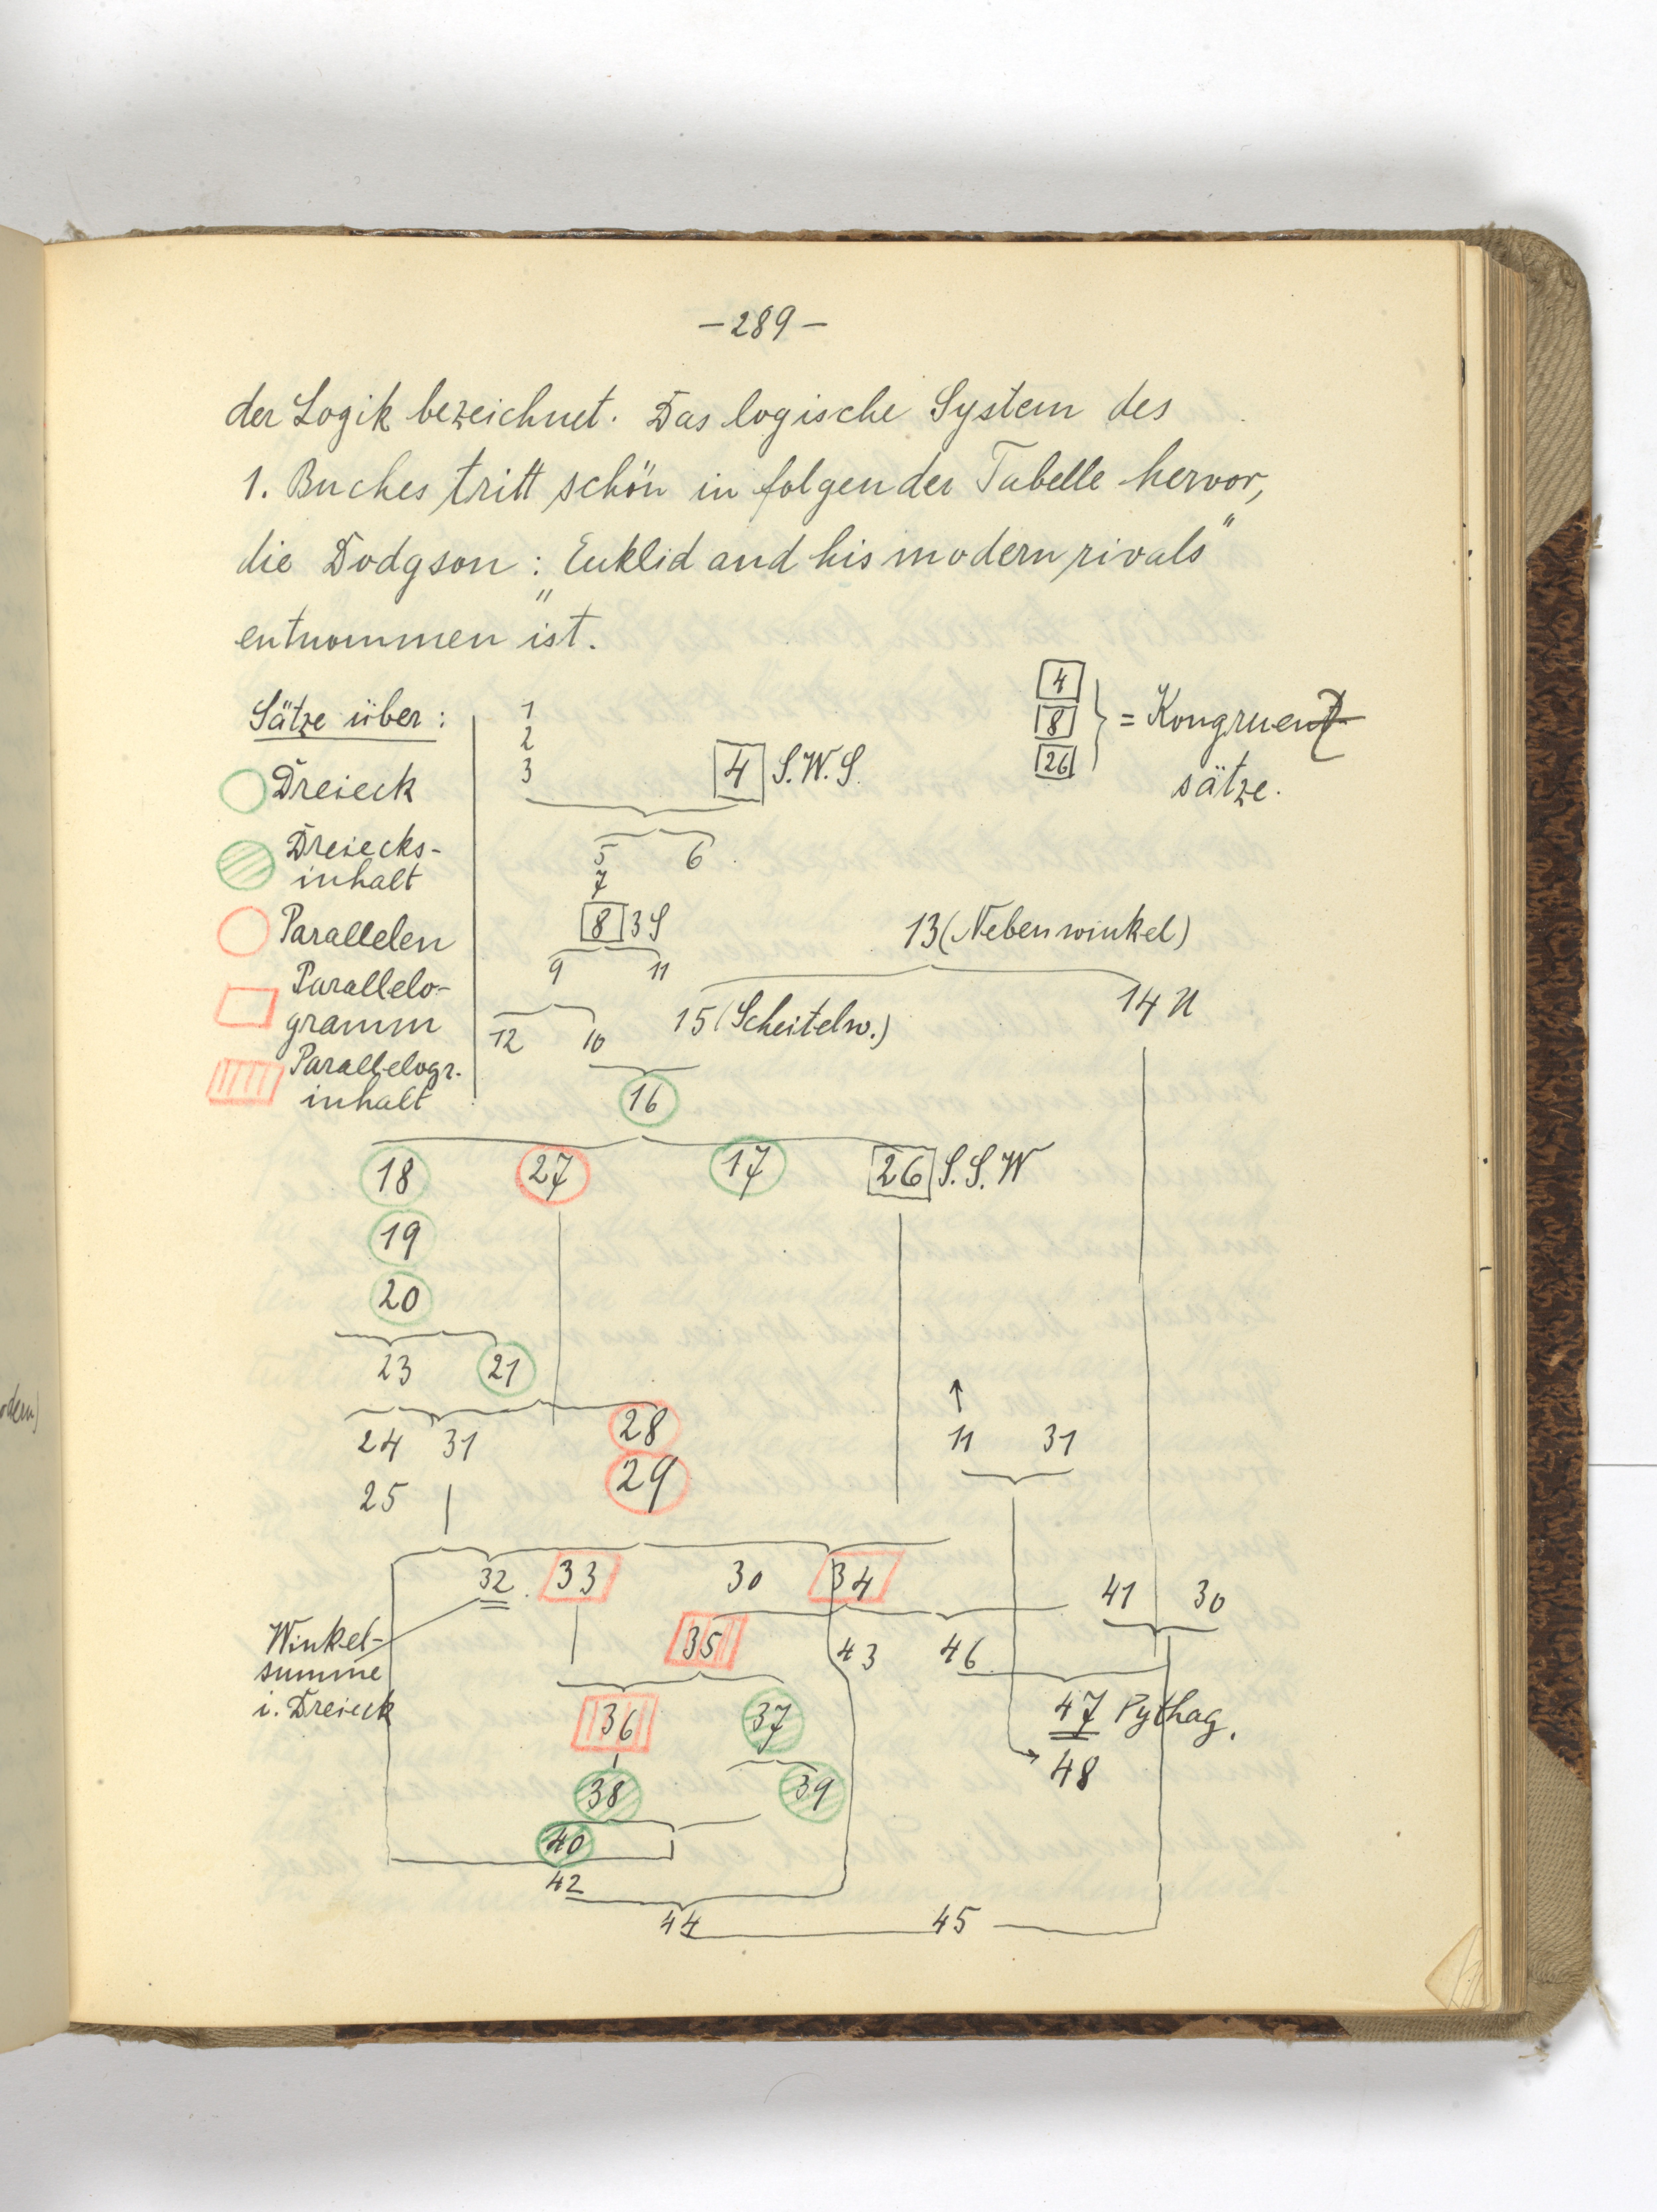 - 289 -
der Logik bezeichnet. Das logische System des
1. Buches tritt schön in folgender Tabelle hervor,
die Dodgson: „Euklid and his modern rivals"
entnommen ist.
Sätze über:
Dreieck
Dreiecks-
inhalt
Parallelen
Parallelo-
gramm
Parallelogr.
inhalt
4
8
26
= Kongruenz
sätze.
1
2
3
4 S.W.S.
5 6
7
8 3S
9 11
13 (Nebenwinkel)
12 10
15 (Scheitelw.)
14 U
16
18 27 17 26 S.S.W
19
20
23 21
24 31 28
25 29
11 31
32 33 30 34 41 30
Winkel-
summe
i. Dreieck
35 43 46
36 37 47 Pythag.
38 39 48
40
42
44 45